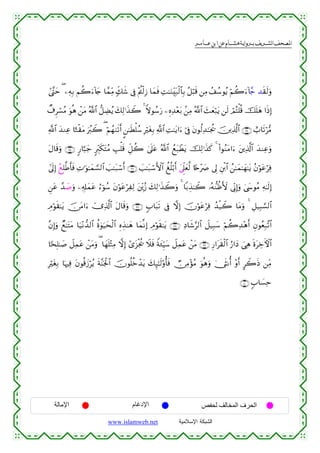 المصحف الشريف برواية هشام عن ابن عامر
وَلَقَد جَّآءَكُمْ يُوسُفُ مِن قَبْلُ بِٱلْبَيِّنَٰتِ فَمَا زِلْتُمْ فِى شَكٍّ مِّمَّا جَآءَكُم بِهِۦ ۖ حَتَّىٰٓ
إِذَا هَلَكَ قُلْتُمْ لَن يَبْعَثَ ٱللَّهُ مِنۢ بَعْدِهِۦ رَسُولًا ۚ كَذَٰلِكَ يُضِلُّ ٱللَّهُ مَنْ هُوَ مُسْرِفٌ
مُّرْتَابٌ ﴿٣٤﴾ ٱلَّذِينَ يُجَٰدِلُونَ فِىٓ ءَايَٰتِ ٱللَّهِ بِغَيْرِ سُلْطَٰنٍ أَتَىٰهُمْ ۖ كَبُرَ مَقْتًا عِندَ ٱللَّهِ
وَعِندَ ٱلَّذِينَ ءَامَنُوا۟ ۚ كَذَٰلِكَ يَطْبَعُ ٱللَّهُ عَلَىٰ كُلِّ قَلْبِ مُتَكَبِّرٍ جَبَّارٍ ﴿٣٥﴾ وَقَالَ
فِرْعَوْنُ يَٰهَٰمَٰنُ ٱبْنِ لِى صَرْحًا لَّعَلِّىَ أَبْلُغُ ٱلْأَسْبَٰبَ ﴿٣٦﴾ أَسْبَٰبَ ٱلسَّمَٰوَٰتِ فَأَطَّلِعُ إِلَىٰٓ
إِلَٰهِ مُوسَىٰ وَإِنِّى لَأَظُنُّهُۥ كَٰذِبًا ۚ وَكَذَٰلِكَ زُيِّنَ لِفِرْعَوْنَ سُوٓءُ عَمَلِهِۦ وَصَدَّ عَنِ
ٱلسَّبِيلِ ۚ وَمَا كَيْدُ فِرْعَوْنَ إِلَّا فِى تَبَابٍ ﴿٣٧﴾ وَقَالَ ٱلَّذِىٓ ءَامَنَ يَٰقَوْمِ
ٱتَّبِعُونِ أَهْدِكُمْ سَبِيلَ ٱلرَّشَادِ ﴿٣٨﴾ يَٰقَوْمِ إِنَّمَا هَٰذِهِ ٱلْحَيَوٰةُ ٱلدُّنْيَا مَتَٰعٌ وَإِنَّ
ٱلْـَٔاخِرَةَ هِىَ دَارُ ٱلْقَرَارِ ﴿٣٩﴾ مَنْ عَمِلَ سَيِّئَةً فَلَا يُجْزَىٰٓ إِلَّا مِثْلَهَا ۖ وَمَنْ عَمِلَ صَٰلِحًا
مِّن ذَكَرٍ أَوْ أُنثَىٰ وَهُوَ مُؤْمِنٌ فَأُو۟لَٰٓئِكَ يَدْخُلُونَ ٱلْجَنَّةَ يُرْزَقُونَ فِيهَا بِغَيْرِ
حِسَابٍ ﴿٤٠﴾
الحرف المخالف لحفص الإدغام الإمالة
الشبكة الإسلامية www.islamweb.net